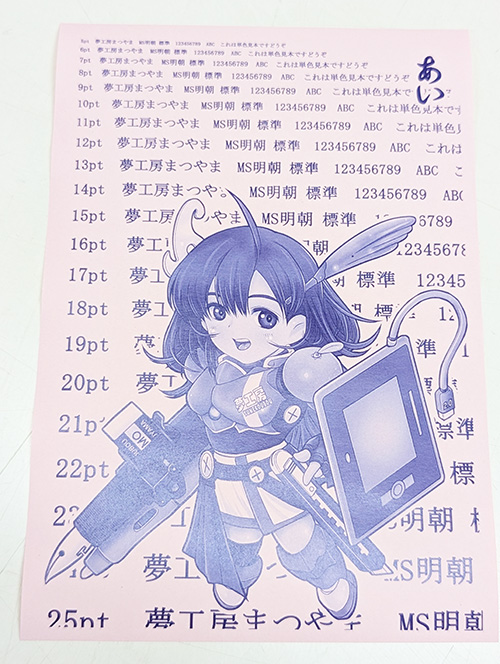 5pt 夢工房まつやま MS明朝 標準 123456789 ABC これは単色見本ですどうぞ
6pt 夢工房まつやま MS明朝 標準 123456789 ABC これは単色見本ですどうぞ
7pt 夢工房まつやま MS明朝 標準 123456789 ABC これは単色見本ですどうぞ
8pt 夢工房まつやま MS明朝 標準 123456789 ABC これは単色見本ですどうぞ
9pt 夢工房まつやま MS明朝 標準 123456789 ABC これは単色見本です
10pt 夢工房まつやま MS明朝 標準 123456789 ABC これは単色見本です
11pt 夢工房まつやま MS明朝 標準 123456789 ABC これは単色見
12pt 夢工房まつやま MS明朝 標準 123456789 ABC これは
13pt 夢工房まつやま MS明朝 標準 123456789 ABC
14pt 夢工房まつやま MS明朝 標準 123456789 AB
15pt 夢工房まつやま MS明朝 標準 123456789
16pt 夢工房 明朝 標準 1234567
17pt 夢工 標準 12345
18pt 夢工 準 12
19pt 夢 準 1
20pt 夢工 標準
21pt 標準
22pt 夢 標
明朝
夢工 MS明朝
25pt 夢工房まつやま MS明朝
あい
夢工房
MO